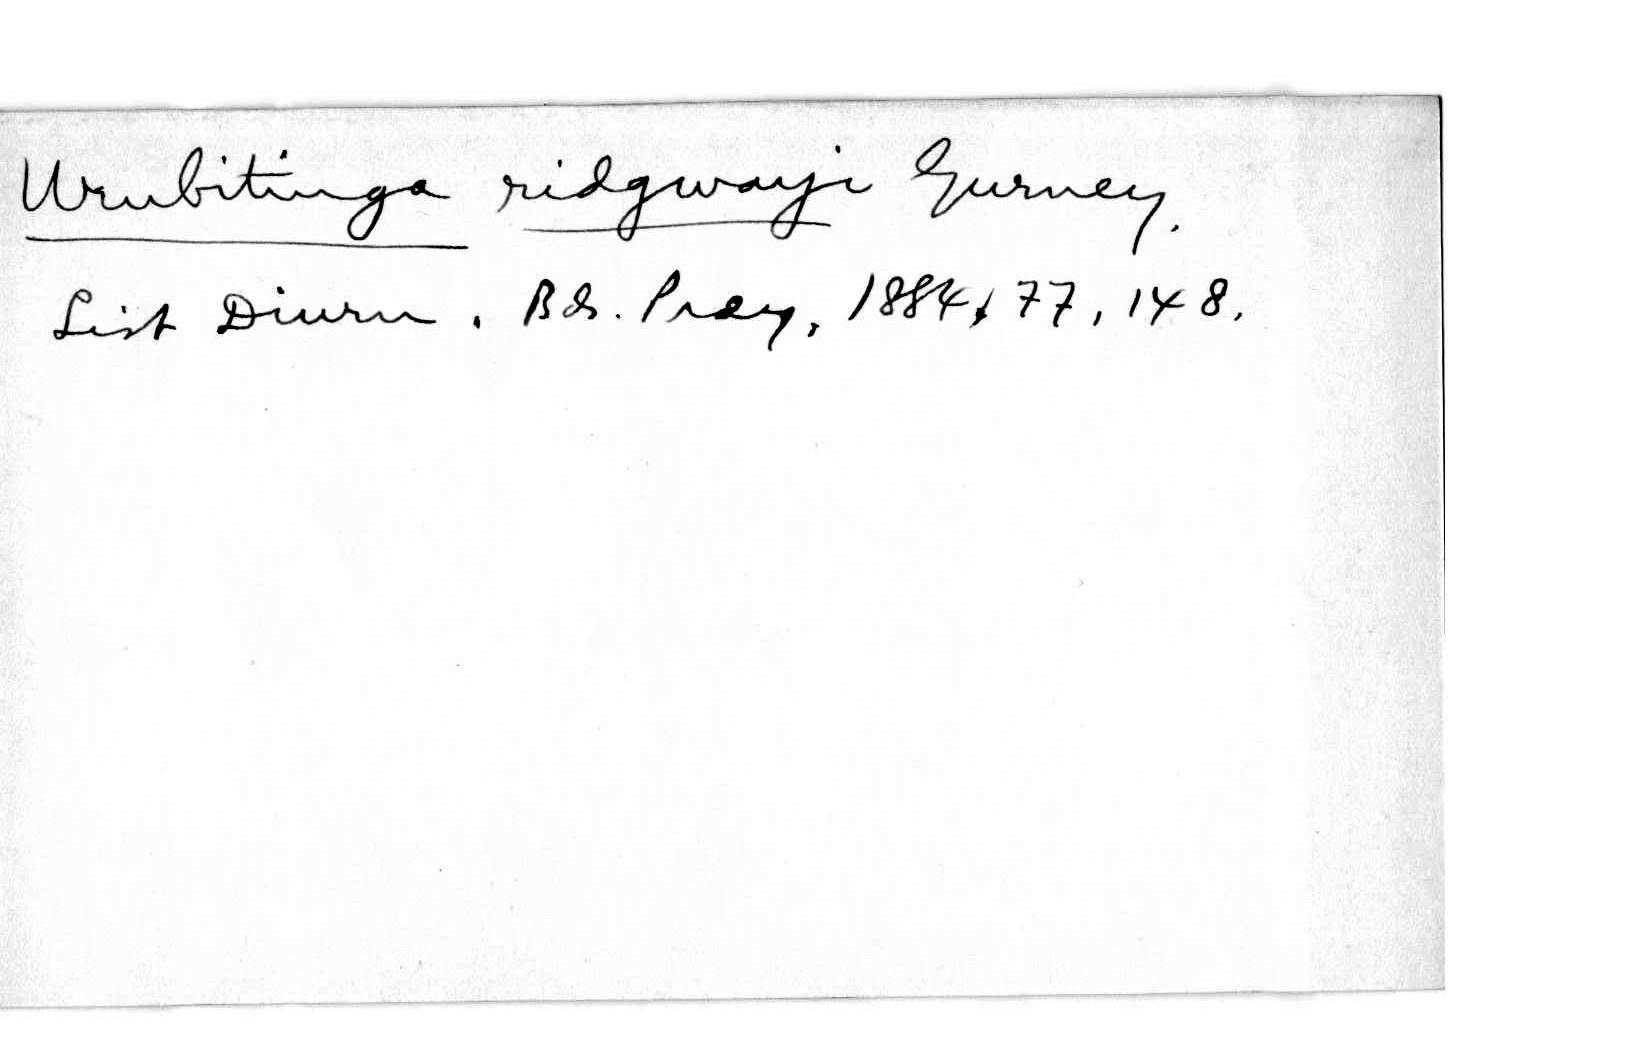 Urubitinga ridgwayi Gurney.
List Diurn. Bds. Prey, 1884, 77, 148.